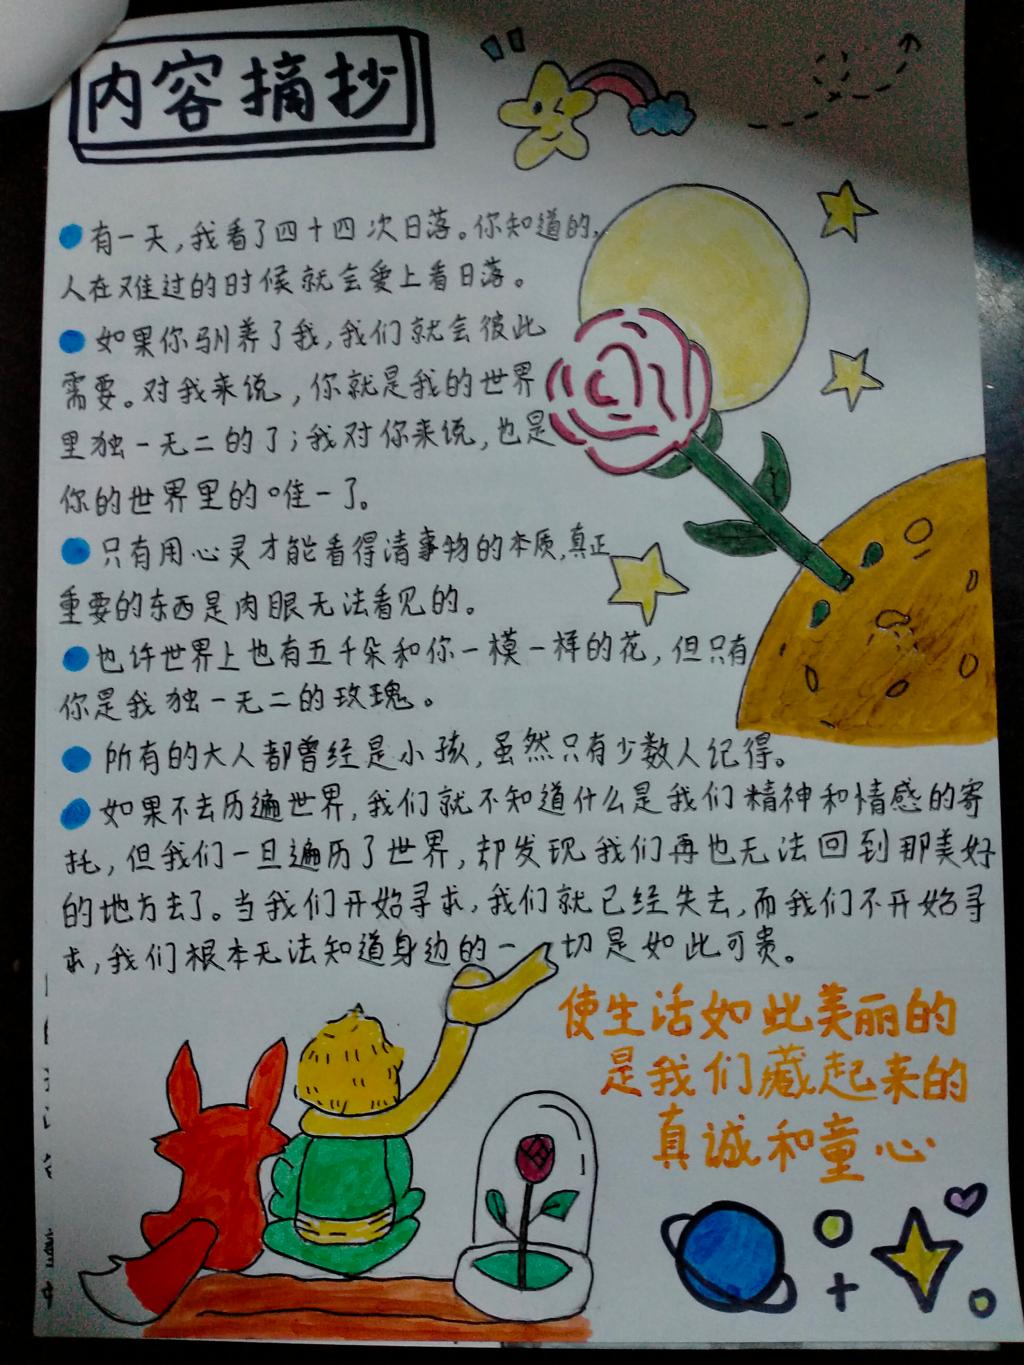 内容摘抄
有一天，我看了四十四次日落。你知道的，
人在难过的时候就会爱上看日落。
如果你驯养了我，我们就会彼此
需要。对我来说，你就是我的世界
里独一无二的了；我对你来说，也是
你的世界里的唯一了。
只有用心灵才能看得清事物的本质，真正
重要的东西是肉眼无法看见的。
也许世界上也有五千朵和你一模一样的花，但只有
你是我独一无二的玫瑰。
所有的大人都曾经是小孩，虽然只有少数人记得。
如果不去历遍世界，我们就不知道什么是我们精神和情感的寄
托，但我们一旦遍历了世界，却发现我们再也无法回到那美好
的地方去了。当我们开始寻求，我们就已经失去，而我们不开始寻
求，我们根本无法知道身边的一切是如此可贵。
使生活如此美丽的
是我们藏起来的
真诚和童心